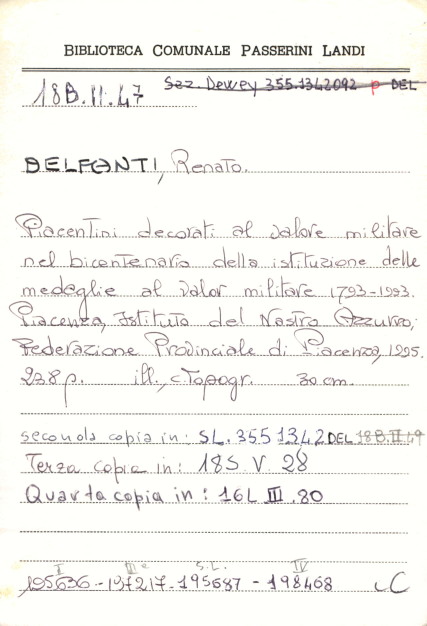 BIBLIOTECA COMUNALE PASSERINI LANDI
18B.II.47 Sez. Dewey 355.1342092 p DEL
BELFANTI, Renato.
Piacentini decorati al valore militare
nel bicentenario della istituzione delle
medaglie al valor militare 1793-1993.
Piacenza, Istituto del Nastro Azzurro,
Federazione Provinciale di Piacenza, 1995.
238 p. ill., c. topogr. 30 cm.
seconda copia in: SL. 355 1342 DEL 18B.II.49
Terza copia in: 18S. V. 28
Quarta copia in: 16L III. 80
I S.L. IV
195636 - 197217 - 195687 - 198468